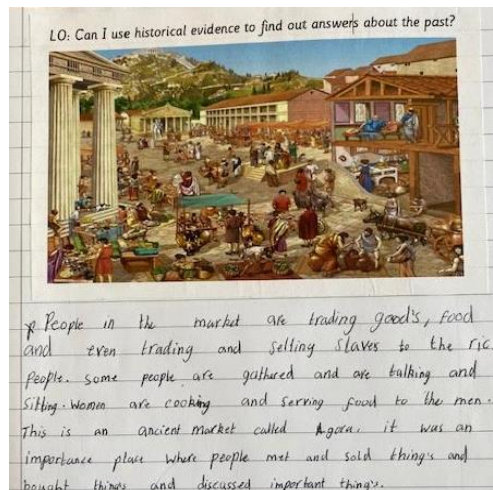 LO: Can I use historical evidence to find out answers about the past?
People in the market are trading good's, food
and even trading and selling slaves to the ric
people. some people are gathured and are talking and
Sitting. Women are cooking and serving food to the men.
This is an ancient market called Agora. it was an
importance place where people met and sold thing's and
bought things and discussed important thing's.